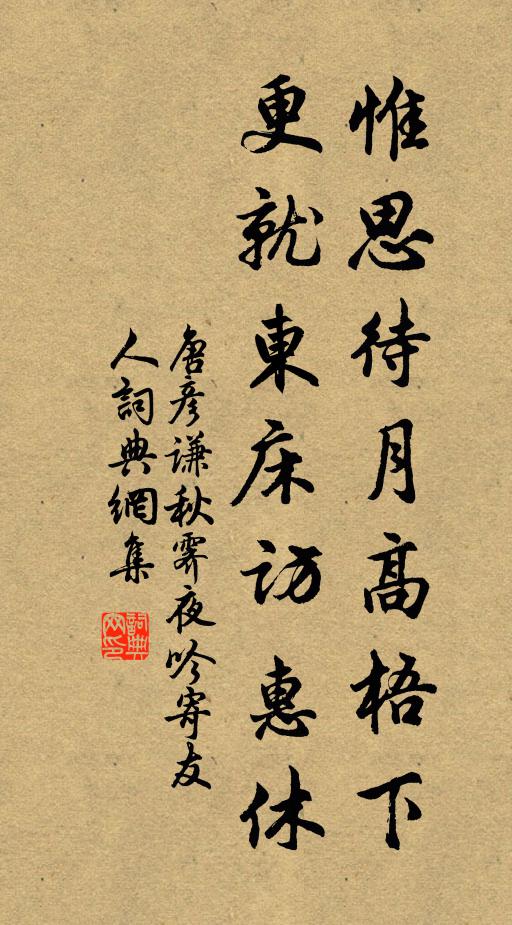 惟思待月高梧下
更就東床訪惠休
唐彥謙秋霽夜吟寄友
人詞典網集
詞典網印